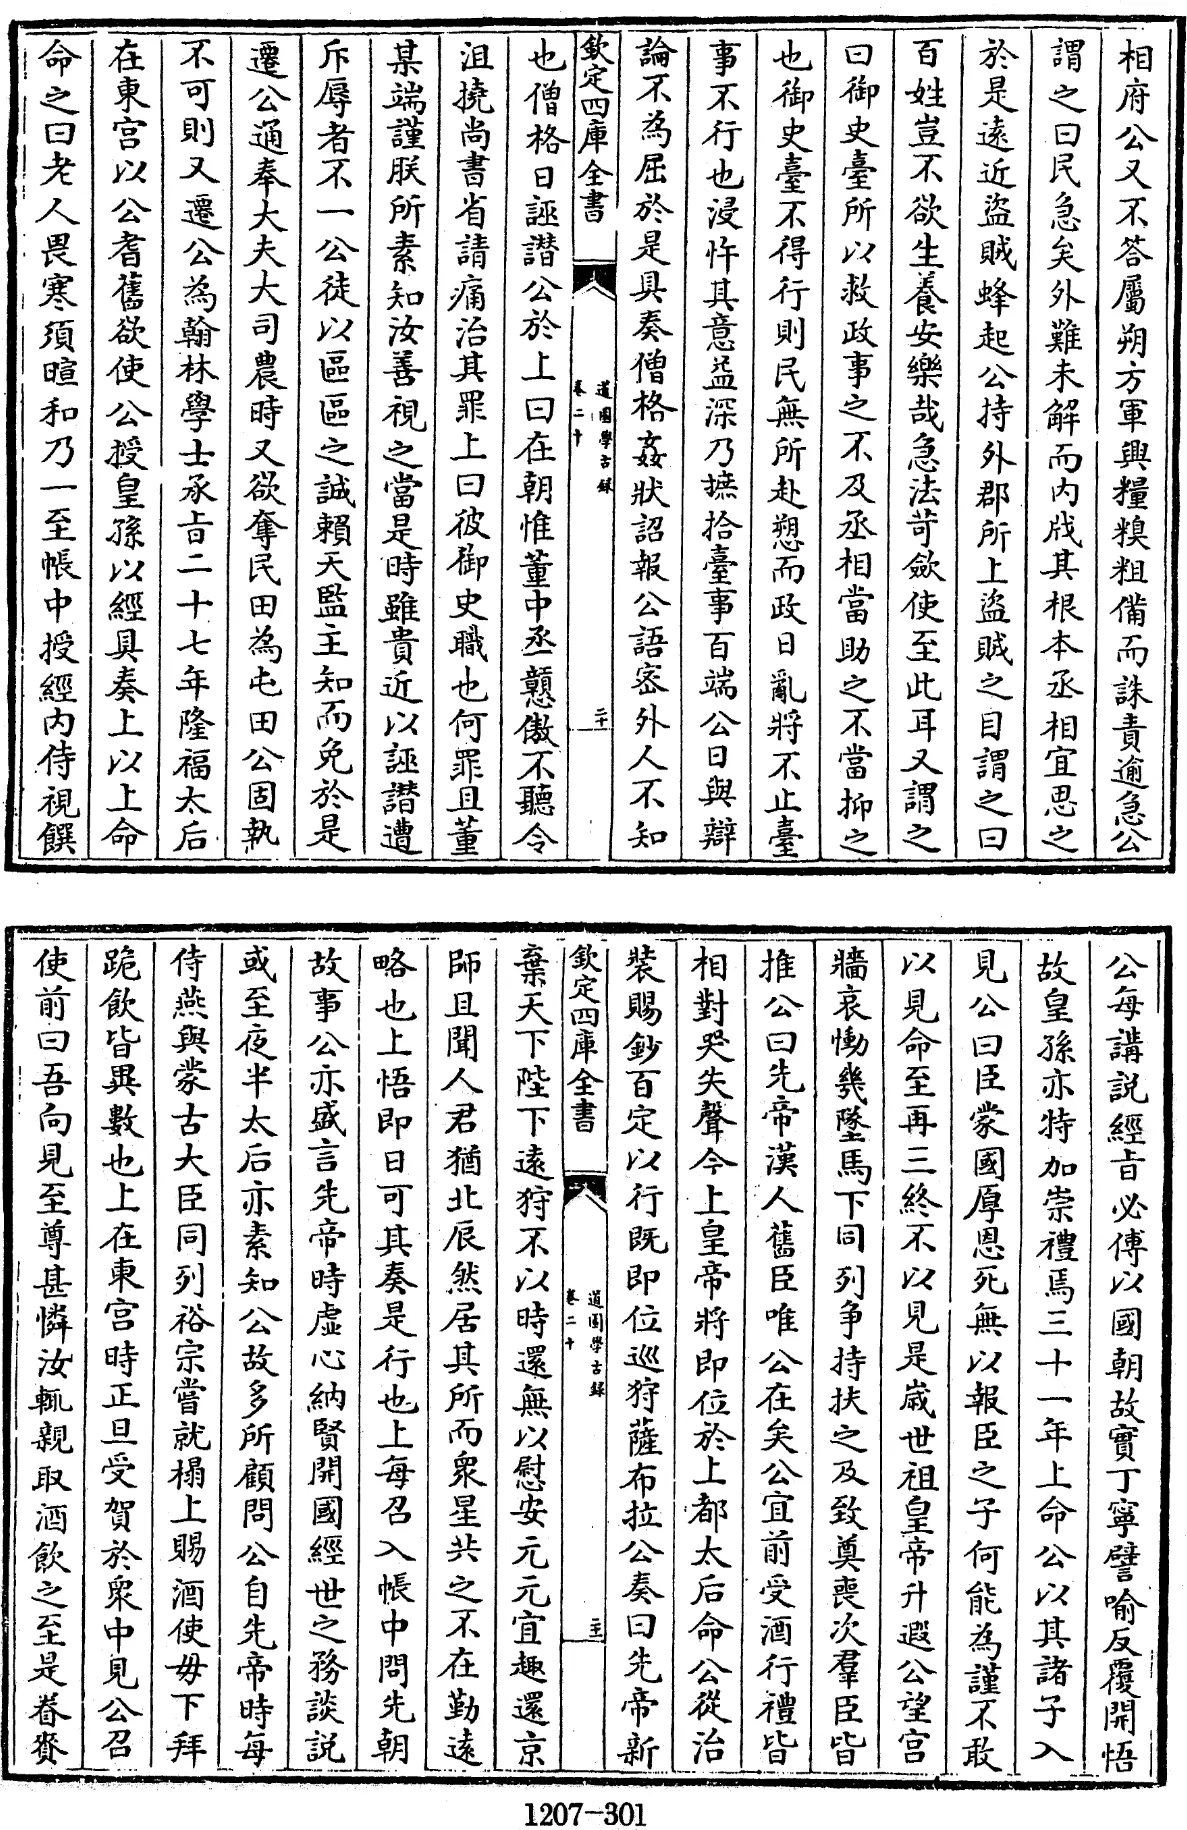 相府公又不答屬朔方軍興糧糗粗備而誅責逾急公
謂之曰民急矣外難未解而内戕其根本丞相宜思之
於是遠近盜賊蜂起公持外郡所上盜賊之目謂之曰
百姓豈不欲生養安樂哉急法苛斂使至此耳又謂之
曰御史臺所以救政事之不及丞相當助之不當抑之
也御史臺不得行則民無所赴愬而政日亂將不止臺
事不行也浸忤其意益深乃摭拾臺事百端公日與辯
論不為屈於是具奏僧格姦狀詔報公語密外人不知
欽定四庫全書
道園學古錄
卷二十
二十
也僧格日誣譖公於上曰在朝惟董中丞戇傲不聽令
沮撓尚書省請痛治其罪上曰彼御史職也何罪且董
某端謹朕所素知汝善視之當是時雖貴近以誣譖遭
斥辱者不一公徒以區區之誠賴天監主知而免於是
遷公通奉大夫大司農時又欲奪民田為屯田公固執
不可則又遷公為翰林學士承旨二十七年隆福太后
在東宫以公耆舊欲使公授皇孫以經具奏上以上命
命之曰老人畏寒須暄和乃一至帳中授經内侍視饌
公每講說經旨必傅以國朝故實丁寧譬喻反覆開悟
故皇孫亦特加崇禮焉三十一年上命公以其諸子入
見公曰臣蒙國厚恩死無以報臣之子何能為謹不敢
以見命至再三終不以見是嵗世祖皇帝升遐公望宫
牆哀慟㡬墜馬下同列争持扶之及致奠喪次羣臣皆
推公曰先帝漢人舊臣唯公在矣公宜前受酒行禮皆
相對哭失聲今上皇帝將即位於上都太后命公從治
裝賜鈔百定以行既即位巡狩薩布拉公奏曰先帝新
欽定四庫全書
道園學古錄
卷二十
主
棄天下陛下遠狩不以時還無以慰安元元宜趣還京
師且聞人君猶北辰然居其所而衆星共之不在勤遠
略也上悟即日可其奏是行也上每召入帳中問先朝
故事公亦盛言先帝時虛心納賢開國經世之務談說
或至夜半太后亦素知公故多所顧問公自先帝時每
侍燕與蒙古大臣同列裕宗嘗就榻上賜酒使毋下拜
跪飲皆異數也上在東宫時正旦受賀於衆中見公召
使前曰吾向見至尊甚憐汝輒親取酒飲之至是眷賚
1207-301